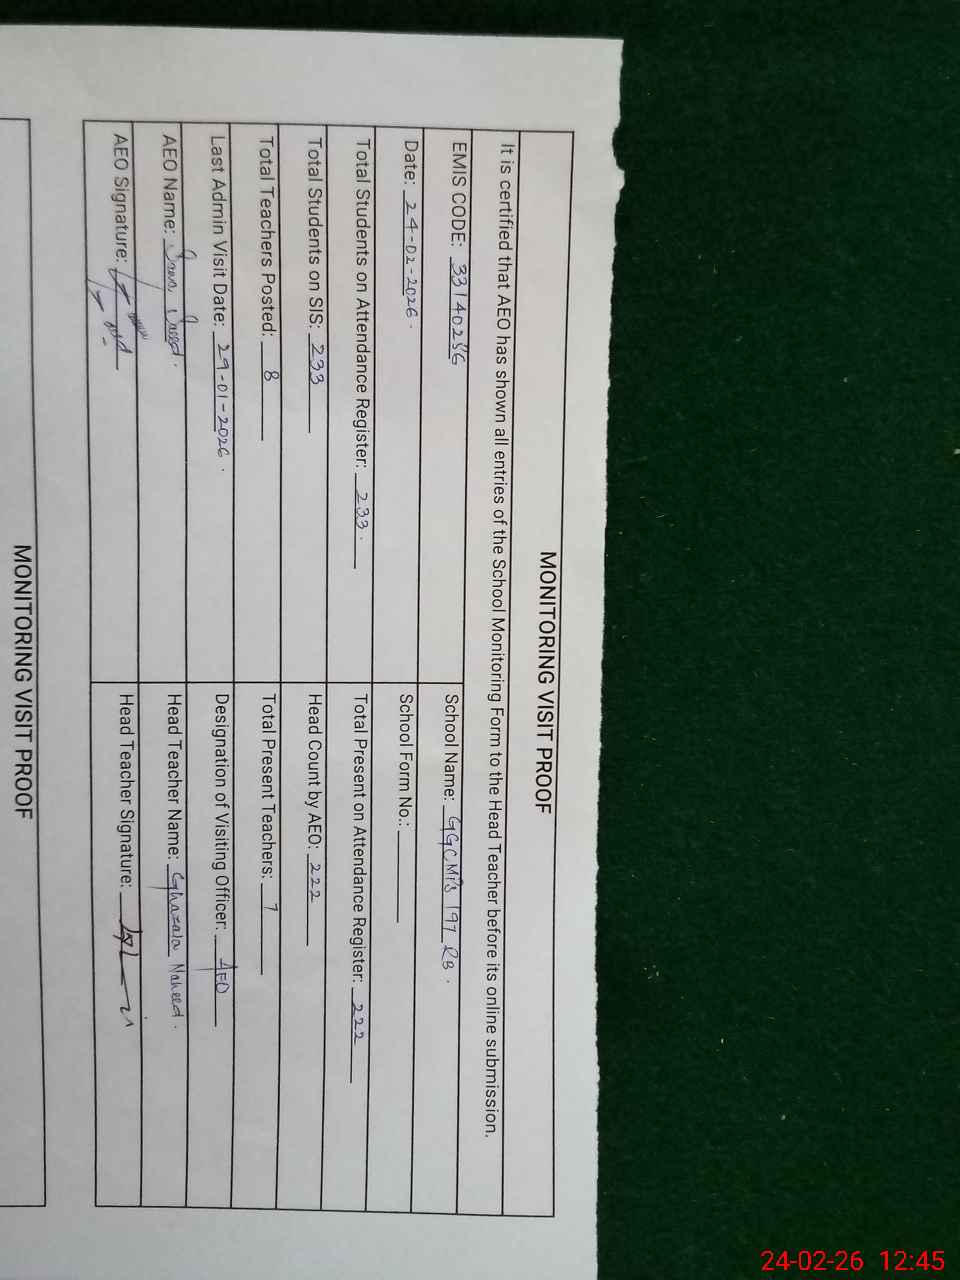 MONITORING VISIT PROOF
It is certified that AEO has shown all entries of the School Monitoring Form to the Head Teacher before its online submission.
EMIS CODE: 33140256
School Name: GGCMPS 197 RB.
Date: 24-02-2026.
School Form No.:
Total Students on Attendance Register: 233.
Total Present on Attendance Register: 222
Total Students on SIS: 233
Head Count by AEO: 222
Total Teachers Posted: 8
Total Present Teachers: 7
Last Admin Visit Date: 29-01-2026.
Designation of Visiting Officer: AEO
AEO Name: Saeed.
Head Teacher Name: Ghazala Naheed.
AEO Signature:
Head Teacher Signature:
MONITORING VISIT PROOF
24-02-26 12:45